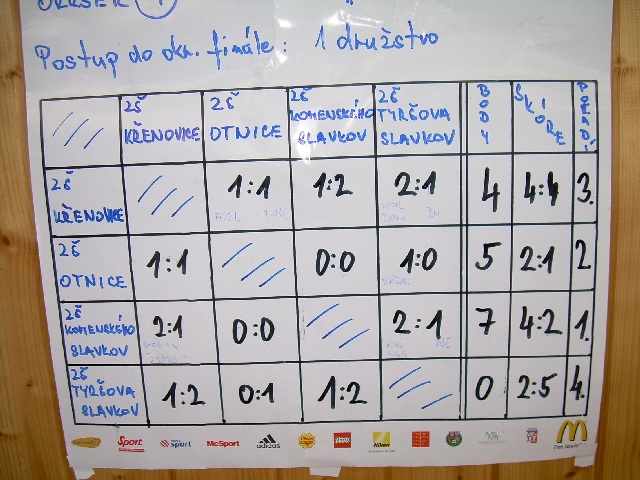 OKRSEK 1
Postup do okr. finále: 1 družstvo
ZŠ KŘENOVICE
ZŠ OTNICE
ZŠ KOMENSKÉHO SLAVKOV
ZŠ TYRŠOVA SLAVKOV
BODY
SKÓRE
POŘADÍ
ZŠ KŘENOVICE 1:1 1:2 2:1 4 4:4 3.
ZŠ OTNICE 1:1 0:0 1:0 5 2:1 2.
ZŠ KOMENSKÉHO SLAVKOV 2:1 0:0 2:1 7 4:2 1.
ZŠ TYRŠOVA SLAVKOV 1:2 0:1 1:2 0 2:5 4.
Sport Sport McSport adidas LEGO Nikon M